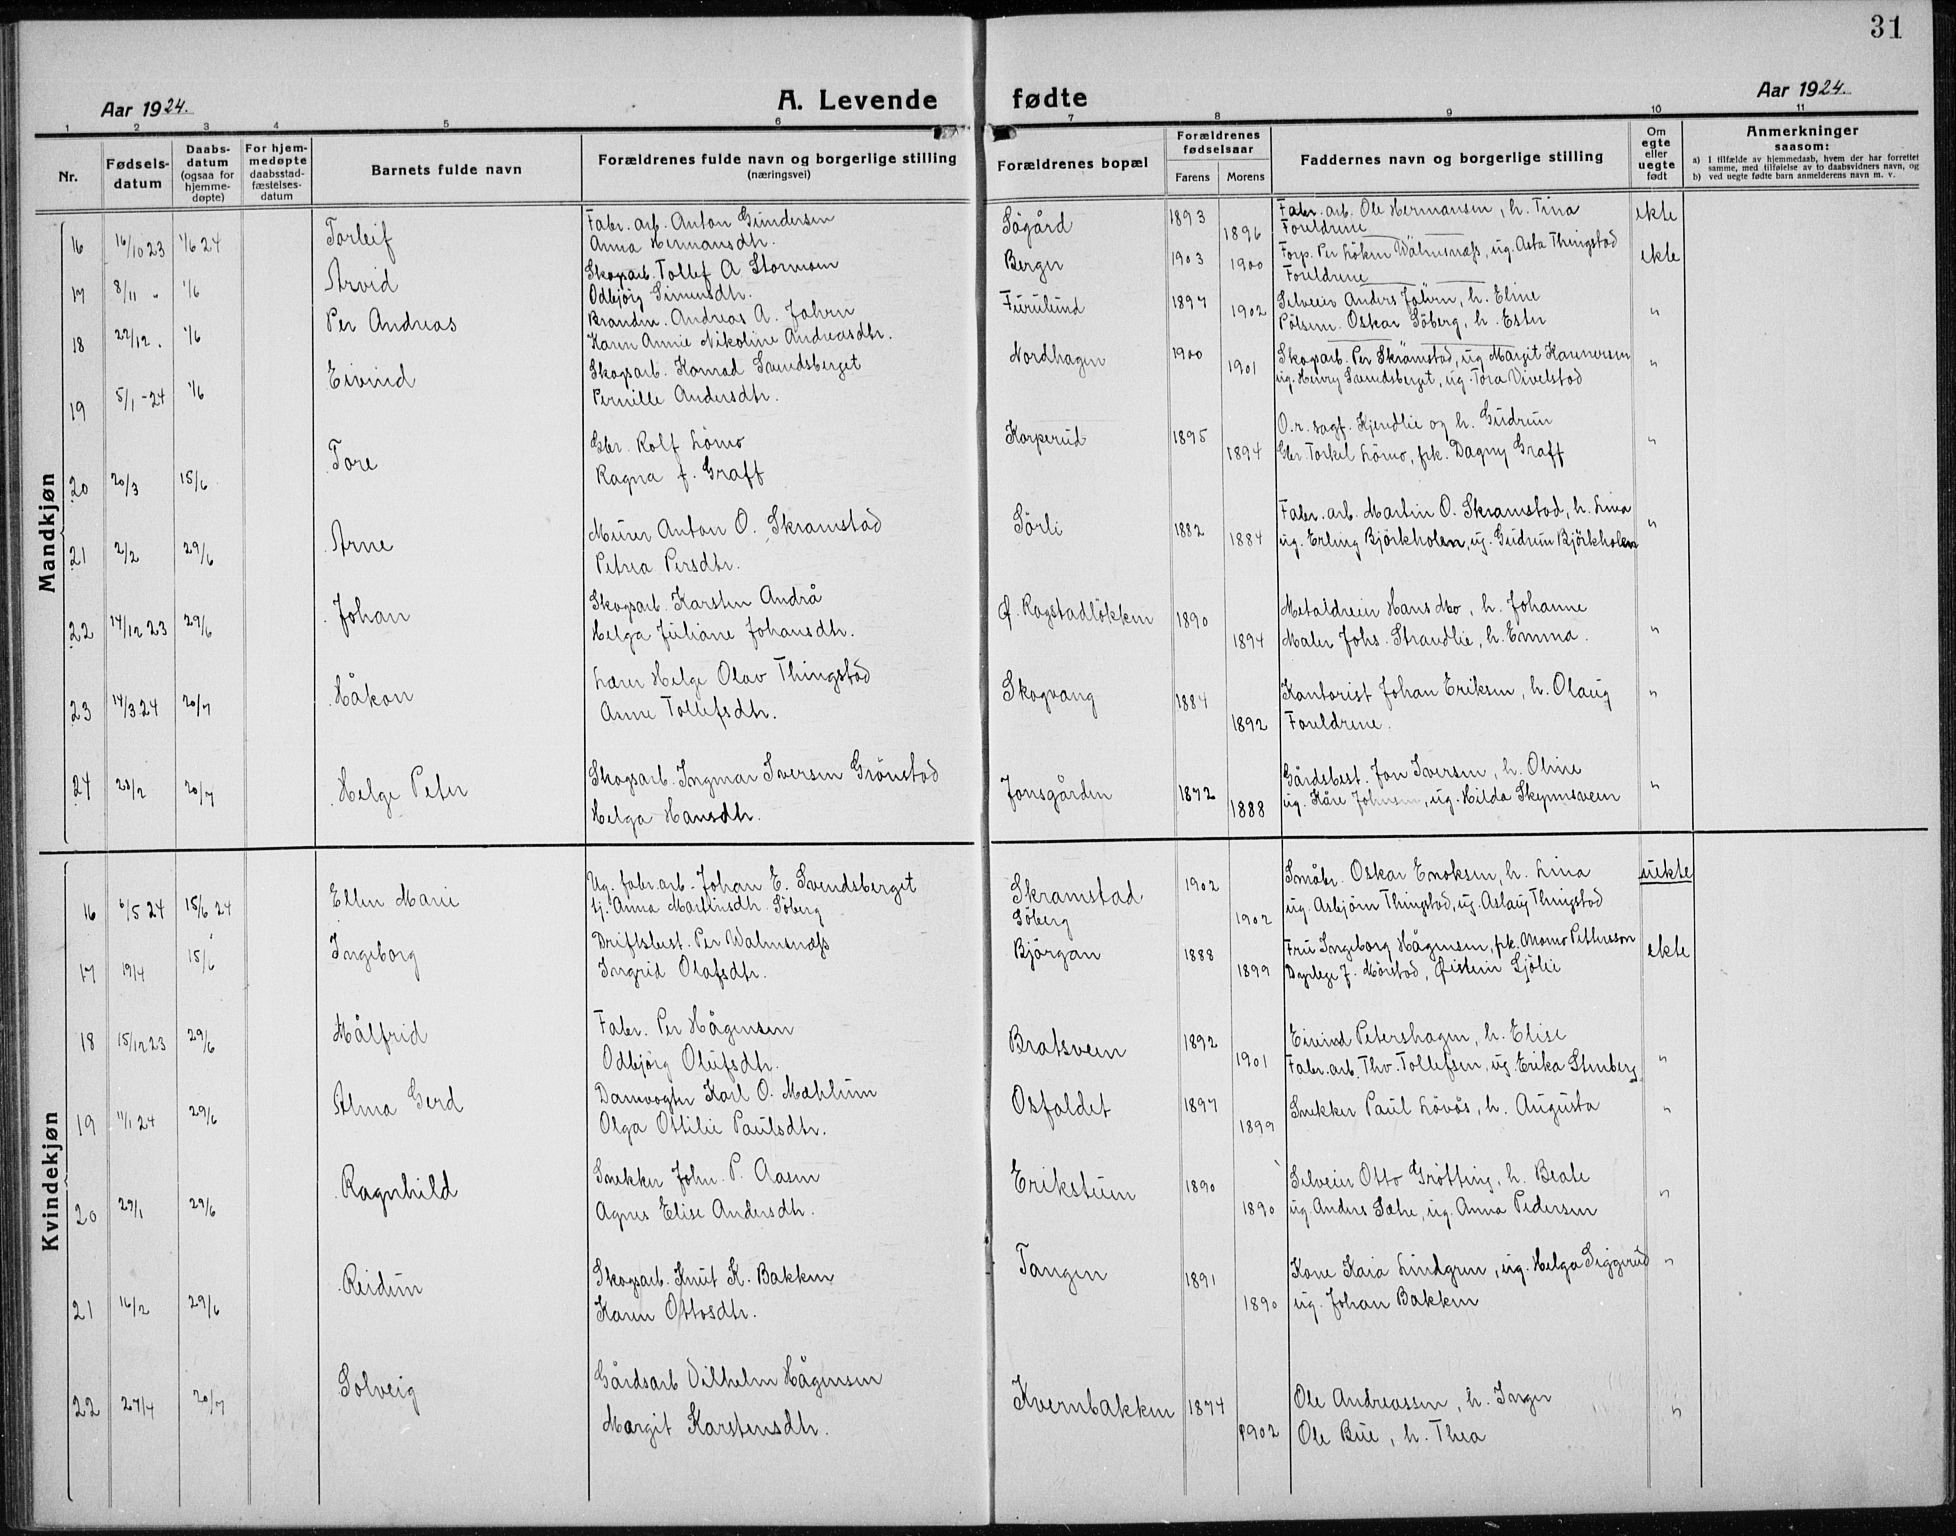 31
Aar 1924.
A. Levende fødte
Aar 1924.
1 2 3 4 5 6 7 8 9 10 11
Nr.
Fødsels-
datum
Daabs-
datum
(ogsaa for
hjemme-
døpte)
For hjem-
medøpte
daabsstad-
fæstelses-
datum
Barnets fulde navn
Forældrenes fulde navn og borgerlige stilling
(næringsvei)
Forældrenes bopæl
Forældrenes
fødselsaar
Farens Morens
Faddernes navn og borgerlige stilling
Om
egte
eller
uegte
født
Anmerkninger
saasom:
a) I tilfælde av hjemmedaab, hvem der har forrettet
samme, med tilføielse av to daabsvidners navn, og
b) ved uegte fødte barn anmelderens navn m. v.
Mandkjøn
16 16/10 23 1/6 24 Torleif Fabr. arb. Anton Gundersen Sögård 1893 Fabr. arb. Ole Hermansen, h. Tina ekte
Anna Hermansdtr. 1896 Foreldrene
17 8/11 " 1/6 Arvid Skogsarb. Tollef A Stormoen Bergn 1903 Forp. Per Löken Walmsnæss, ug. Asta Thingstad ekte
Odbjörg Simensdtr. 1900 Foreldrene
18 22/12 . 1/6 Per Andreas Brandm. Andreas A. Johrn Furulund 1897 Selveier Anders Johrn, h. Eline "
Karen Annie Nikoline Andreasdtr. 1902 Pölsem. Oskar Söberg, h. Ester
19 5/1-24 1/6 Eivind Skogsarb. Konrad Svendsberget Nordhagen 1900 Skogsarb. Per Skramstad, ug Margit Hannersen "
Pernille Andersdtr. 1901 ug. Henry Svendsberget, ug. Tora Vivelstad
20 20/3 15/6 Tore Gbr. Rolf Lömo Korperud 1895 O.r. sagf. Kjendlie og h. Gudrun "
Ragna f. Graff 1894 Gbr. Torkel Lömo, frk. Dagny Graff
21 2/2 29/6 Arne Murer Anton O. Skramstad Sörli 1882 Fabr. arb. Martin O. Skramstad, h. Lina "
Petrea Persdtr. 1884 ug. Erling Björkholen, ug. Gudrun Björkholen
22 14/12 23 29/6 Johan Skogsarb. Karsten Andrå Ø. Rogstadlökken 1890 Metaldreier Hans Mo, h. Johanne "
Helga Juliane Johansdtr. 1894 Maler Johs. Strandlie, h. Emma.
23 14/3 24 20/7 Håkon Lærer Helge Olav Thingstad Skogvang 1884 Kontorist Johan Eriksen, h. Olaug "
Anne Tollefsdtr. 1892 Foreldrene.
24 23/2 20/7 Helge Peter Skogsarb. Ingmar Iversen Grönstad Jonsgården 1872 Gårdsbest. Jon Iversen, h. Oline "
Helga Hansdtr. 1888 ug. Kåre Johnsen, ug. Hilda Skynnsveen
Kvindekjøn
16 6/5 24 15/6 24 Ellen Marie Ug. fabr. arb. Johan E. Svendsberget Skramstad 1902 Småbr. Oskar Enoksen, h. Lina uekte
tj. Anna Martinsdtr. Söberg Söberg 1902 ug. Asbjörn Thingstad, ug. Aslaug Thingstad
17 19/4 15/6 Ingeborg Driftsbest. Per Walmsnæss Björgan 1888 Fru Ingeborg Hågensen, frk. Momo Pettersson ekte
Ingrid Olafsdtr. 1899 Dyrlege J. Mörstad, Øistein Sjölie
18 15/12 23 29/6 Målfrid Fabr. Per Hågensen Bratsveen 1892 Eivind Petershagen, h. Elise "
Odbjörg Olufsdtr. 1901 Fabr. arb. Thv. Tollefsen, ug. Erika Stenberg
19 11/1 24 29/6 Alma Gerd Damvogter Karl O. Mæhlum Osfaldet 1897 Snekker Paul Lövås, h. Augusta "
Olga Ottilie Paulsdtr. 1899
20 29/1 29/6 Ragnhild Snekker John P. Aasen Erikstuen 1890 Selveier Otto Grötting, h. Beate "
Agnes Elise Andersdtr. 1890 ug. Anders Sæhe, ug. Anna Pedersen
21 16/2 29/6 Reidun Skogsarb. Knut K. Bakken Tangen 1891 Kone Kaia Lindgren, ug. Helga Siggerud "
Karen Ottosdtr. 1890 ug. Johan Bakken
22 27/4 20/7 Solveig Gårdsarb Vilhelm Hågensen Kvernbakken 1874 Ole Andreassen, h. Inger "
Margit Karstensdtr. 1902 Ole Bue, h. Thea